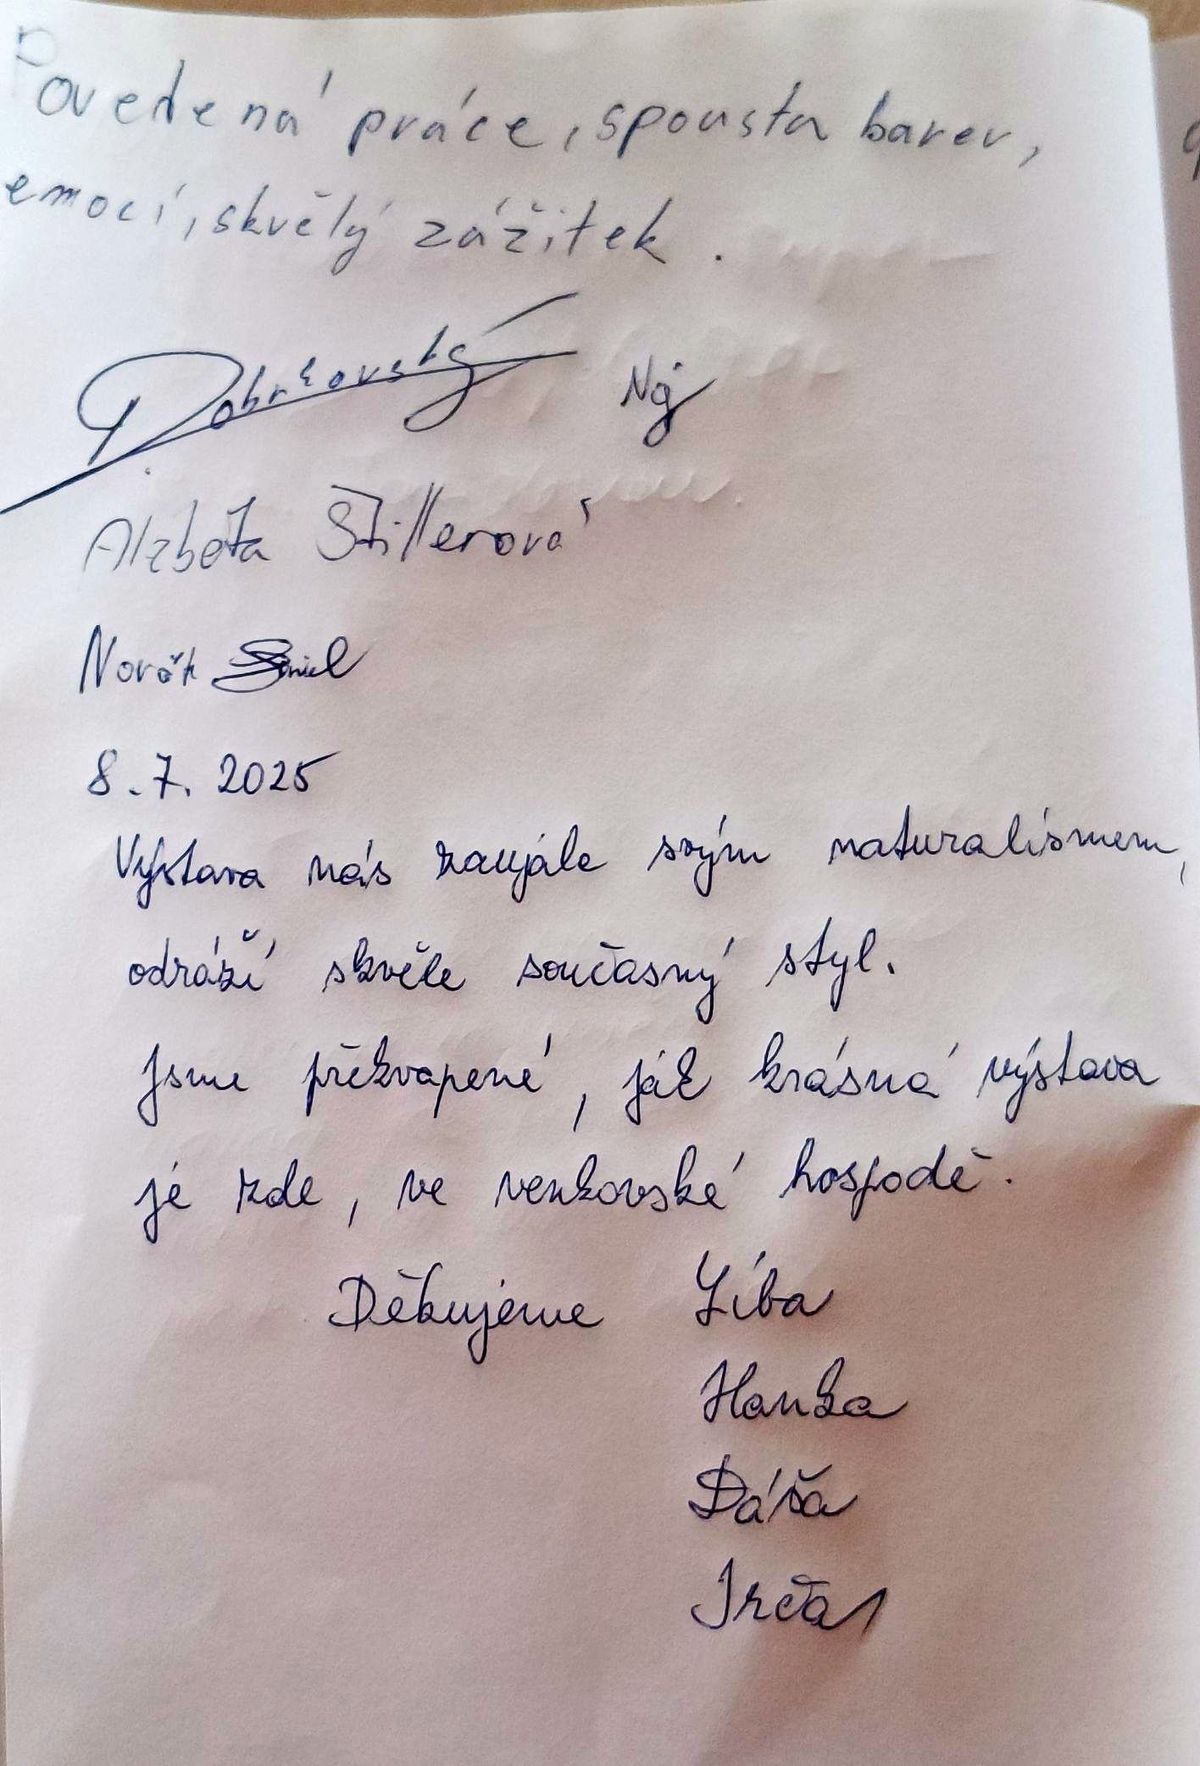 Povedená práce, spousta barev,
emocí, skvělý zážitek.
Alžběta Stillerová
Novák
8.7.2025
Výstava nás zaujále svým naturalismem,
odráží skvěle současný styl.
Jsme překvapené, jak krásná výstava
je zde, ve venkovské hospodě.
Děkujeme Líba
Hanka
Dáša